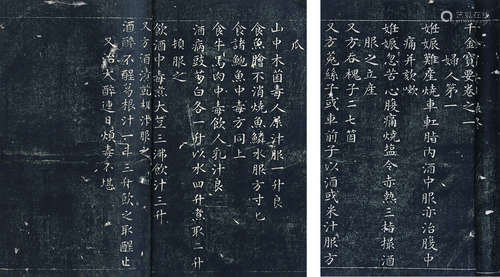 千金寶要卷之一
婦人第一
姙娠難產燒車缸脂內酒中服亦治腹中
痛并欬嗽
姙娠忽苦心腹痛燒塩令赤熱三指撮酒
服之立產
又方吞槐子二七箇
又方菟絲子或車前子以酒或米汁服方
瓜
山中木菌毒人屎汁服一升良
食魚膾不消燒魚鱗水服方寸匕
食諸鮑魚中毒方同上
食牛馬肉中毒飲人乳汁良
酒病豉葱白各一升以水四升煮取二升
頓服之
飲酒中毒煮大豆三沸飲汁三升
又方酒漬乾椹汁服之
酒醉不醒葛根汁一斗三升飲之取醒止
又治大醉連日煩毒不堪